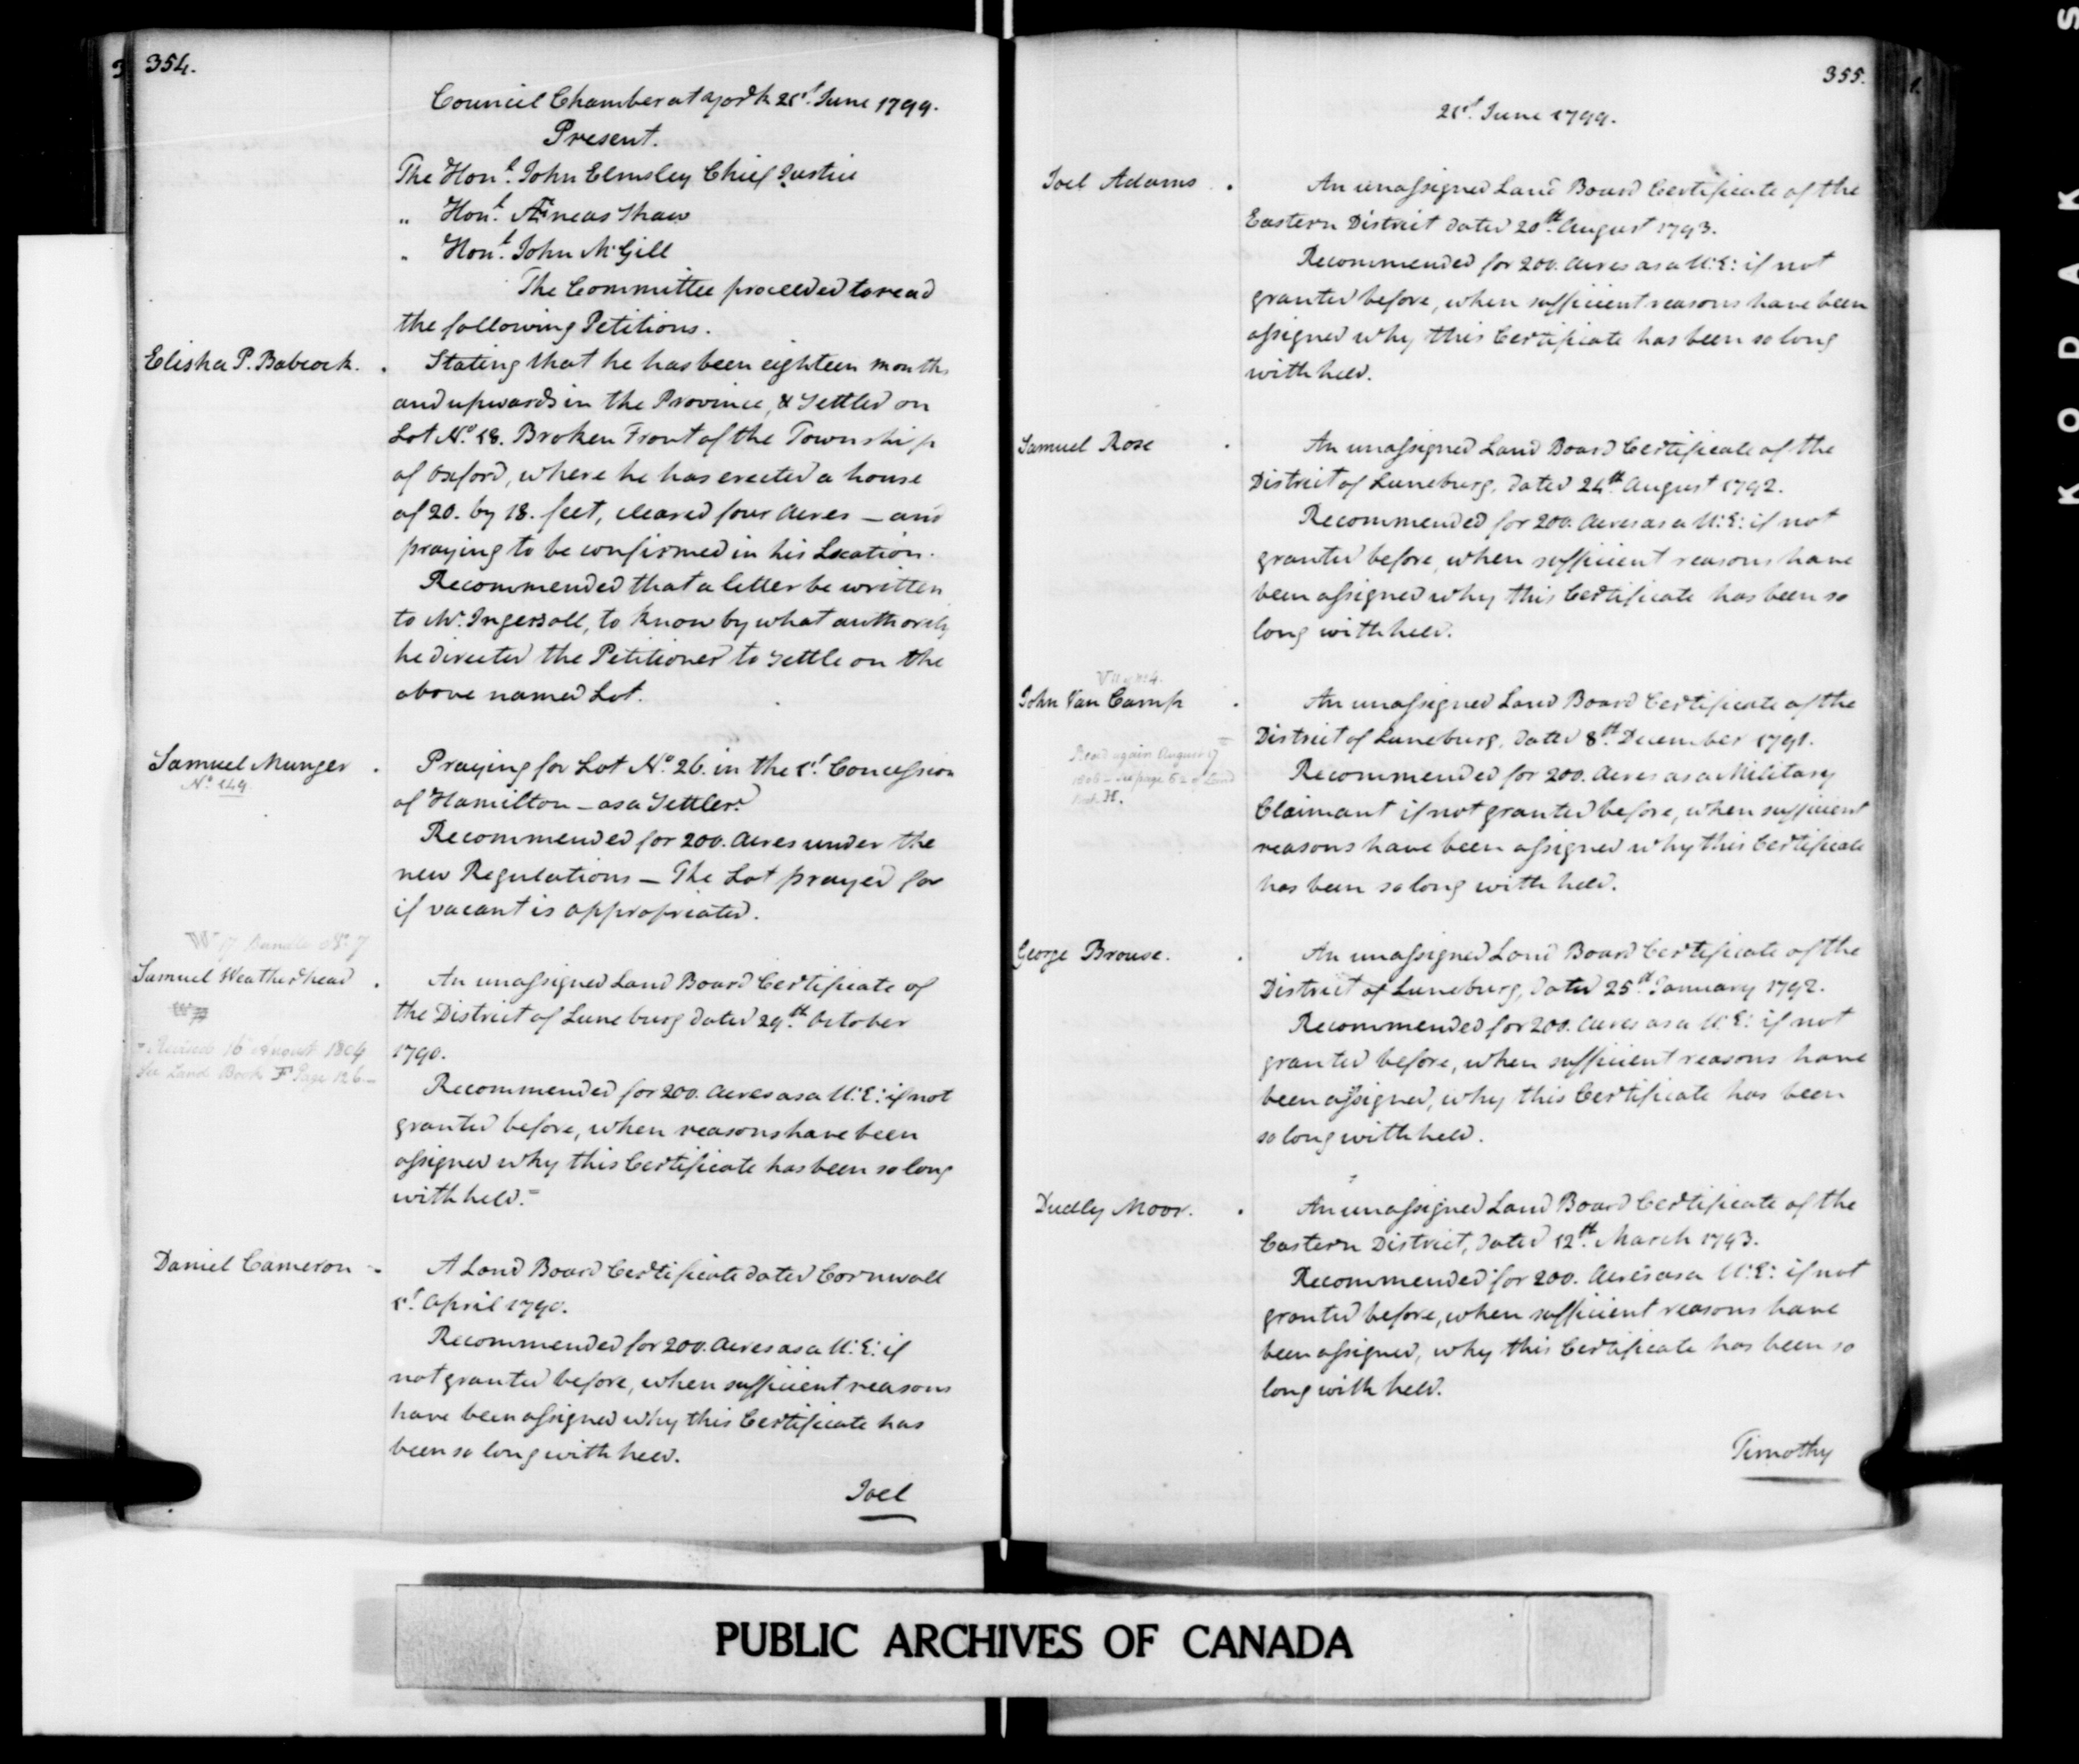 354.
Council Chamber at York 21st June 1799.
Present.
The Honl. John Elmsley Chief Justice
" Honl. Æneas Shaw
" Honl. John McGill
The Committee proceeded to read
the following Petitions.
Elisha P. Babcock. . Stating that he has been eighteen months
and upwards in the Province, & Settled on
Lot No. 18. Broken Front of the Township
of Oxford, where he has erected a house
of 20. by 18. feet, cleared four Acres — and
praying to be confirmed in his Location.
Recommended that a letter be written
to Mr. Ingersoll, to know by what authority
he directed the Petitioner to Settle on the
above named Lot.
Samuel Munger . Praying for Lot No. 26. in the 1st. Concession
No. 149.
of Hamilton — as a Settler.
Recommended for 200. Acres under the
new Regulations — The Lot prayed for
if vacant is appropriated.
W 17 Bundle No. 7
Samuel Weatherhead . An unassigned Land Board Certificate of
the District of Luneburg dated 29th. October
1790.
Revised 16 August 1804
See Land Book F Page 126
Recommended for 200. Acres as a U: E: if not
granted before, when reasons have been
assigned why this Certificate has been so long
withheld.
Daniel Cameron - A Land Board Certificate dated Cornwall
1st. April 1790.
Recommended for 200. Acres as a U: E: if
not granted before, when sufficient reasons
have been assigned why this Certificate has
been so long withheld.
Joel
355.
21st. June 1799.
Joel Adams . An unassigned Land Board Certificate of the
Eastern District dated 20th. August 1793.
Recommended for 200. Acres as a U: E: if not
granted before, when sufficient reasons have been
assigned why this Certificate has been so long
withheld.
Samuel Rose . An unassigned Land Board Certificate of the
District of Luneburg, dated 24th. August 1792.
Recommended for 200. Acres as a U: E: if not
granted before, when sufficient reasons have
been assigned why this Certificate has been so
long withheld.
John Van Camp . An unassigned Land Board Certificate of the
District of Luneburg, dated 8th. December 1791.
Read again August 17
1806 - see page 52 of Land
Book H.
Recommended for 200. Acres as a Military
Claimant if not granted before, when sufficient
reasons have been assigned why this Certificate
has been so long withheld.
George Brouse. . An unassigned Land Board Certificate of the
District of Luneburg, dated 25th. January 1792.
Recommended for 200. Acres as a U: E: if not
granted before, when sufficient reasons have
been assigned, why this Certificate has been
so long withheld.
Dudly Moor. . An unassigned Land Board Certificate of the
Eastern District, dated 12th. March 1793.
Recommended for 200. Acres as a U: E: if not
granted before, when sufficient reasons have
been assigned, why this Certificate has been so
long withheld.
Timothy
PUBLIC ARCHIVES OF CANADA
KODAK S